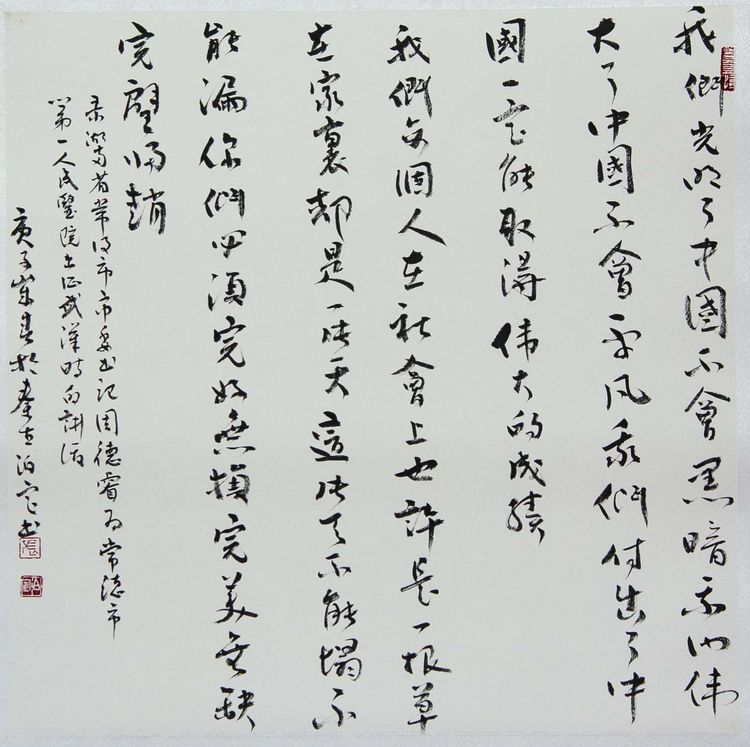 我們光明了中國不會黑暗我們偉
大了中國不會平凡我們付出了中
國一定能取得偉大的成績
我們每個人在社會上也許是一根草
在家裏却是一片天這片天不能塌不
能漏你們必須完好無損完美無缺
完璧歸趙
录湖南省常德市市委書記周德睿為常德市
第一人民醫院出征武漢時的講話
庚子春於書